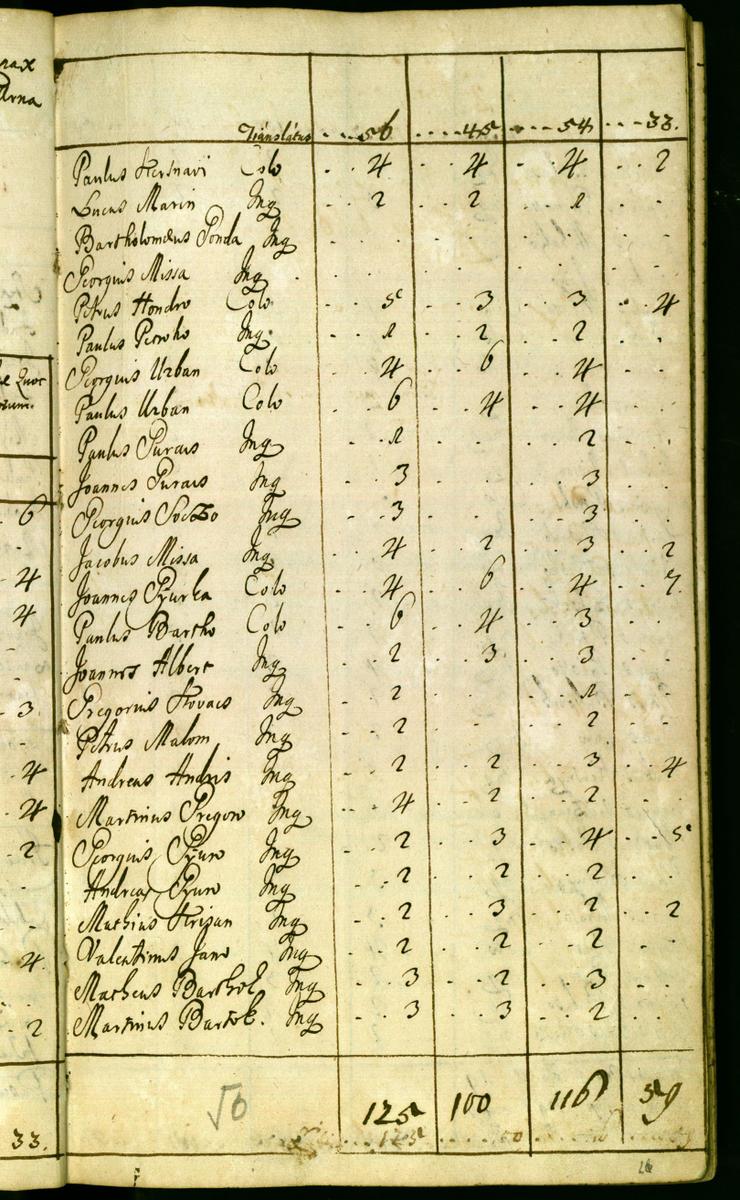 nax
Urna
Translatus . . . 56 . . . . 45 . . . 54 . . . 33.
Paulus Hersnavi Colo . . 4 . . 4 . . 4 . . 2
Lucas Marin Inq . . 2 . . 2 . . 1 . .
Bartholomæus Ponda Inq . . . . . . . .
Georgius Missa Inq . . . . . . . .
Petrus Hondro Colo . . 5 . . 3 . . 3 . . 4
Paulus Inq . . 1 . . 2 . . 2 . .
Georgius Urban Colo . . 4 . . 6 . . 4 . .
Paulus Urban Colo . . 6 . . 4 . . 4 . .
Paulus Inq . . 1 . . . . 2 . .
Joannes Inq . . 3 . . . . 3 . .
Georgius Soczo Inq . . 3 . . . . 3 . .
Jacobus Missa Inq . . 4 . . 2 . . 3 . . 2
Joannes Colo . . 4 . . 6 . . 4 . . 7.
Paulus Bartho Colo . . 6 . . 4 . . 3 . .
Joannes Albert Inq . . 2 . . 3 . . 3 . .
Gregorius Kovacs Inq . . 2 . . . . 1 . .
Petrus Malom Inq . . 2 . . . . 2 . .
Andreas Andris Inq . . 2 . . 2 . . 3 . . 4
Martinus Gregor Inq . . 4 . . 2 . . 2 . .
Georgius Inq . . 2 . . 3 . . 4 . . 5
Andreas Inq . . 2 . . 2 . . 2 . .
Mathias Krizan Inq . . 2 . . 3 . . 2 . . 2
Valentinus Jano Inq . . 2 . . 2 . . 2 . .
Matheus Barthol Inq . . 3 . . 2 . . 3 . .
Martinus Bartol. Inq . . 3 . . 3 . . 2 . .
125 100 116 59
6
4
4
3
4
4
2
4
2
33.